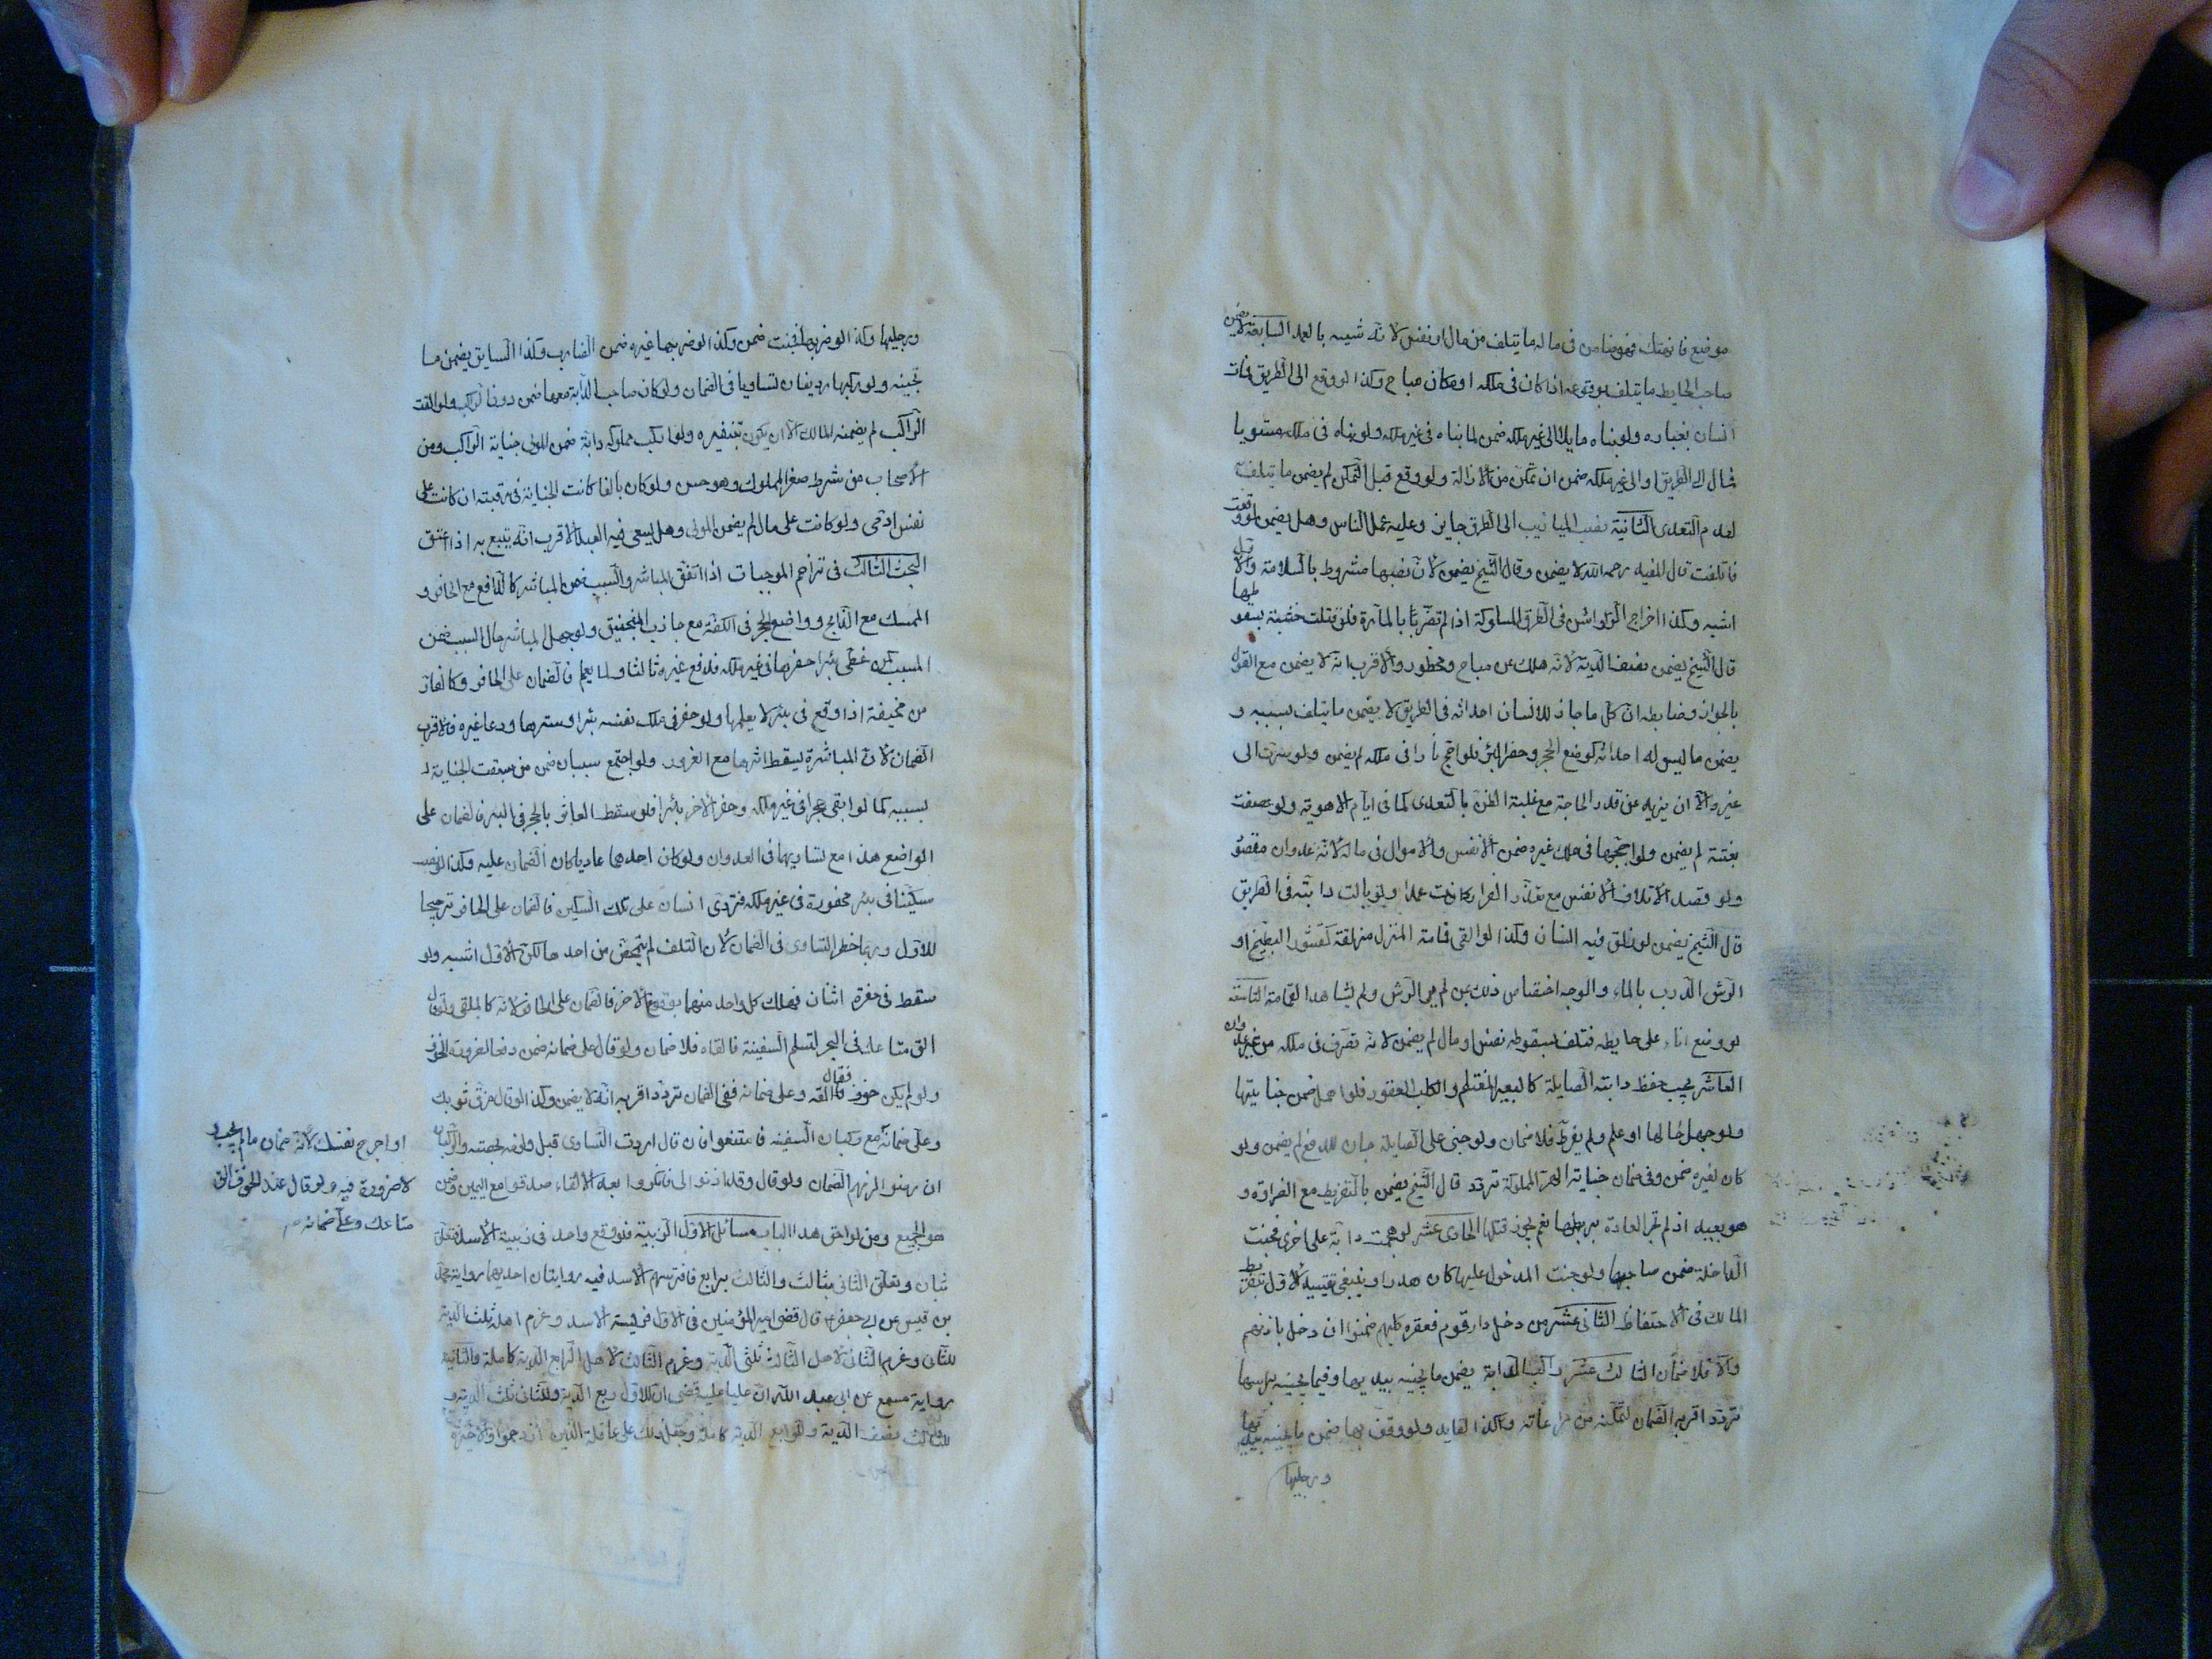 موضع فانهتك فهو ضامن فى ماله ما يتلف من مال او نفس لانه شبيه بالعمد السابعة لا يضمن
صاحب الحايط ما يتلف بوقوعه اذا كان فى ملكه او مكان مباح وكذا لو وقع الى الطريق فمات
انسان بغباره ولو بناه مايلا الى غير ملكه ضمن كما لو بناه فى غير ملكه ولو بناه فى ملكه مستويا
فمال الى الطريق او الى غير ملكه ضمن ان تمكن من الازالة ولو وقع قبل التمكن لم يضمن ما يتلف به
لعدم التعدى الثامنة نصب الميازيب الى الطرق جايز وعليه عمل الناس وهل يضمن لو وقعت
فاتلفت قال المفيد رحمه الله لا يضمن وقال الشيخ يضمن لان نصبها مشروط بالسلامة والاول
اشبه وكذا اخراج الرواشن فى الطرق المسلوكة اذا لم تضر بالمارة فلو قتلت خشبة بسقوطها
قال الشيخ يضمن نصف الدية لانه هلك عن مباح ومحظور والاقرب انه لا يضمن مع القول
بالجواز وضابطه ان كل ما جاز للانسان احداثه فى الطريق لا يضمن ما يتلف بسببه و
يضمن ما ليس له احداثه كوضع الحجر وحفر البئر فلو اجج نارا فى ملكه لم يضمن ولو سرت الى
غيره الا ان يزيد عن قدر الحاجة مع غلبة الظن بالتعدى كما فى ايام الاهوية ولو عصفت
بغتة لم يضمن ولو اججها فى ملك غيره ضمن الانفس والاموال فى ماله لانه عدوان مقصود
ولو قصد الاتلاف الانفس مع تعذر الفرار كانت عمدا ولو بالت دابته فى الطريق
قال الشيخ يضمن لو زلق فيه انسان وكذا لو القى قمامة المنزل مزلقة كقشور البطيخ او
الرش الدرب بالماء والوجه اختصاص ذلك بمن لم ير الرش ولم يشاهد القمامة التاسعة
لو وضع اناء على حايطه فتلف بسقوطه نفس او مال لم يضمن لانه تصرف فى ملكه من غير عدوان
العاشر يجب حفظ دابته الصايلة كالبعير المغتلم والكلب العقور فلو اهمل ضمن جنايتها
ولو جهل حالها او علم ولم يفرط فلا ضمان ولو جنى على الصايلة جان للدفع لم يضمن ولو
كان لغيره ضمن وفى ضمان جناية الهرة المملوكة تردد قال الشيخ يضمن بالتفريط مع الضراوة و
هو بعيد اذ لم تجر العادة بربطها نعم يجوز قتلها الحادى عشر لو هجمت دابة على اخرى فجنت
الداخلة ضمن صاحبها ولو جنت المدخول عليها كان هدرا وينبغى تقييد الاول بتفريط
المالك فى الاحتفاظ الثانى عشر من دخل دار قوم فعقره كلبهم ضمنوا ان دخل باذنهم
والا فلا ضمان الثالث عشر راكب الدابة يضمن ما يجنيه بيديها وفيما يجنيه براسها
تردد اقربه الضمان لتمكنه من مراعاته وكذا القايد ولو وقف بها ضمن ما تجنيه بيديها
ورجليها
ورجليها وكذا لو ضربها فجنت ضمن وكذا لو ضربها غيره ضمن الضارب وكذا السايق يضمن ما
تجنيه ولو ركبها رديفان تساويا فى الضمان ولو كان صاحب الدابة معها ضمن دون الراكب ولو القت
الراكب لم يضمنه المالك الا ان يكون بتنفيره ولو اركب مملوكه دابة ضمن المولى جناية الراكب ومن
الاصحاب من شرط صغر المملوك وهو حسن ولو كان بالغا كانت الجناية فى رقبته ان كانت على
نفس ادمى ولو كانت على مال لم يضمن المولى وهل يسعى فيه العبد الاقرب انه يتبع به اذا اعتق
البحث الثالث فى تزاحم الموجبات اذا اتفق المباشر والسبب ضمن المباشر كالدافع مع الحافر و
الممسك مع الذابح وواضع الحجر فى الكفة مع جاذب المنجنيق ولو جهل المباشر حال السبب ضمن
المسبب كمن غطى بئرا حفرها فى غير ملكه فدفع غيره ثالثا ولما يعلم فالضمان على الحافر وكالفار
من مخيفة اذا وقع فى بئر لا يعلمها ولو حفر فى ملك نفسه بئرا وسترها ودعا غيره فالاقرب
الضمان لان المباشرة يسقط اثرها مع الغرور ولو اجتمع سببان ضمن من سبقت الجناية
بسببه كما لو القى حجرا فى غير ملكه وحفر الاخر بئرا فلو سقط العاثر بالحجر فى البئر فالضمان على
الواضع هذا مع تساويهما فى العدوان ولو كان احدهما عاديا كان الضمان عليه وكذا لو نصب
سكينا فى بئر محفورة فى غير ملكه فتردى انسان على تلك السكين فالضمان على الحافر ترجيحا
للاول وربما خطر التساوى فى الضمان لان التلف لم يتمحض من احدهما لكن الاول اشبه ولو
سقط فى حفرة اثنان فهلك كل واحد منهما بوقوع الاخر فالضمان على الحافر لانه كالملقى ولو قال
الق متاعك فى البحر لتسلم السفينة فالقاه فلا ضمان ولو قال على ضمانه ضمن دفعا لضرورة الخوف
ولو لم يكن خوف فقال القه وعلى ضمانه ففى الضمان تردد اقربه انه لا يضمن وكذا لو قال مزق ثوبك
وعلى ضمانه مع ركبان السفينه فامتنعوا فان قال اردت التساوى قبل ولزمه بحصته والركبان
ان رضوا لزمهم الضمان ولو قال وقد اذنوا لى فانكروا بعد الالقاء صدقوا مع اليمين وضمن
هو الجميع ومن لواحق هذا الباب مسائل الاول الزبية فلو وقع واحد فى زبية الاسد فتعلق
بثان وتعلق الثانى بثالث والثالث برابع فافترسهم الاسد فيه روايتان احديهما رواية محمد
بن قيس عن ابى جعفر قال قضى امير المؤمنين فى الاول فريسة الاسد وغرم اهله ثلث الدية
للثانى وغرم الثانى لاهل الثالث ثلثى الدية وغرم الثالث لاهل الرابع الدية كاملة والثانية
رواية مسمع عن ابى عبد الله ان عليا عليه قضى ان للاول ربع الدية وللثانى ثلث الدية و
للثالث نصف الدية وللرابع الدية كاملة وجعل ذلك على عاقلة الذين ازدحموا والاخيرة
او اجرح نفسك لانه ضمان ما لم يجب و
لا ضرورة فيه ولو قال عند الخوف الق
متاعك وعلى ضمانه